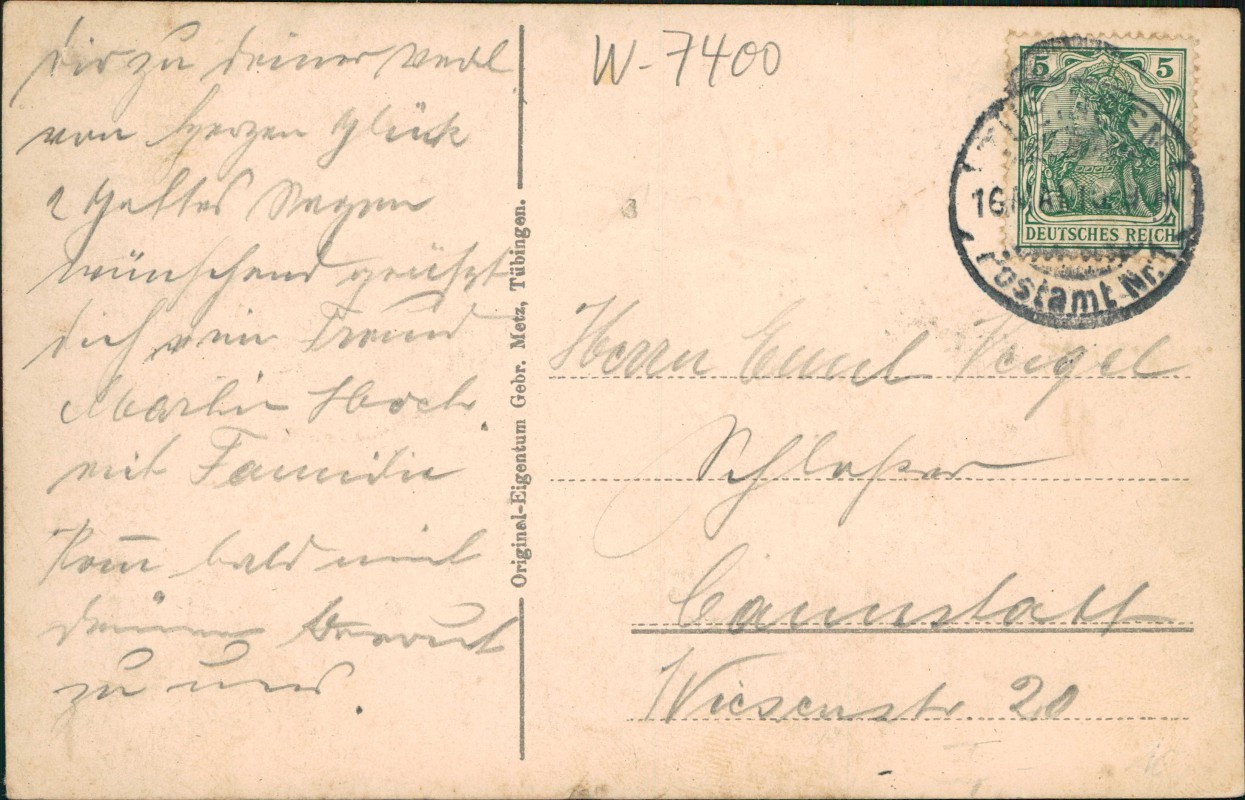 dir zu deiner
von Herzen Glück
& Gottes Segen
wünschend grüßt
dich dein Freund
Martin Hoch
mit Familie
Kom̅ bald mit
deiner Braut
zu uns.
Original-Eigentum Gebr. Metz, Tübingen.
W-7400
5 5
DEUTSCHES REICH
16 MAI
Postamt Nr. 1
Herrn Emil Veigel
Schloßer
Cannstatt
Wiesenstr. 20